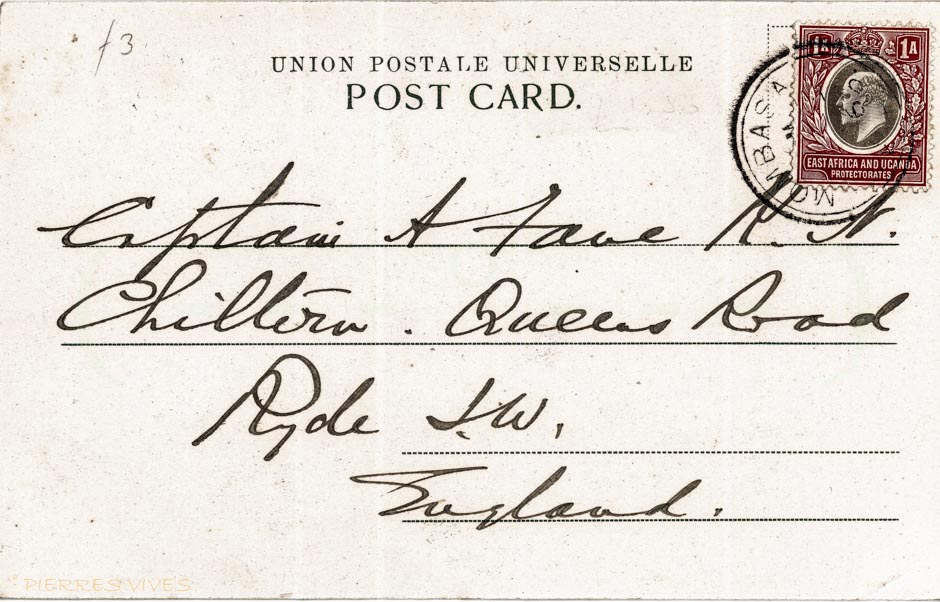 f3
UNION POSTALE UNIVERSELLE
POST CARD.
1A 1A
EAST AFRICA AND UGANDA
PROTECTORATES
MOMBASA
Captain A Fane R. N.
Chiltern. Queens Road
Ryde I.W.
England.
PIERRES VIVES